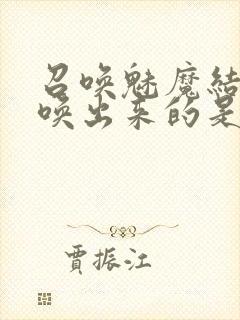 召唤魅魔结
唤出来的是
贾振江